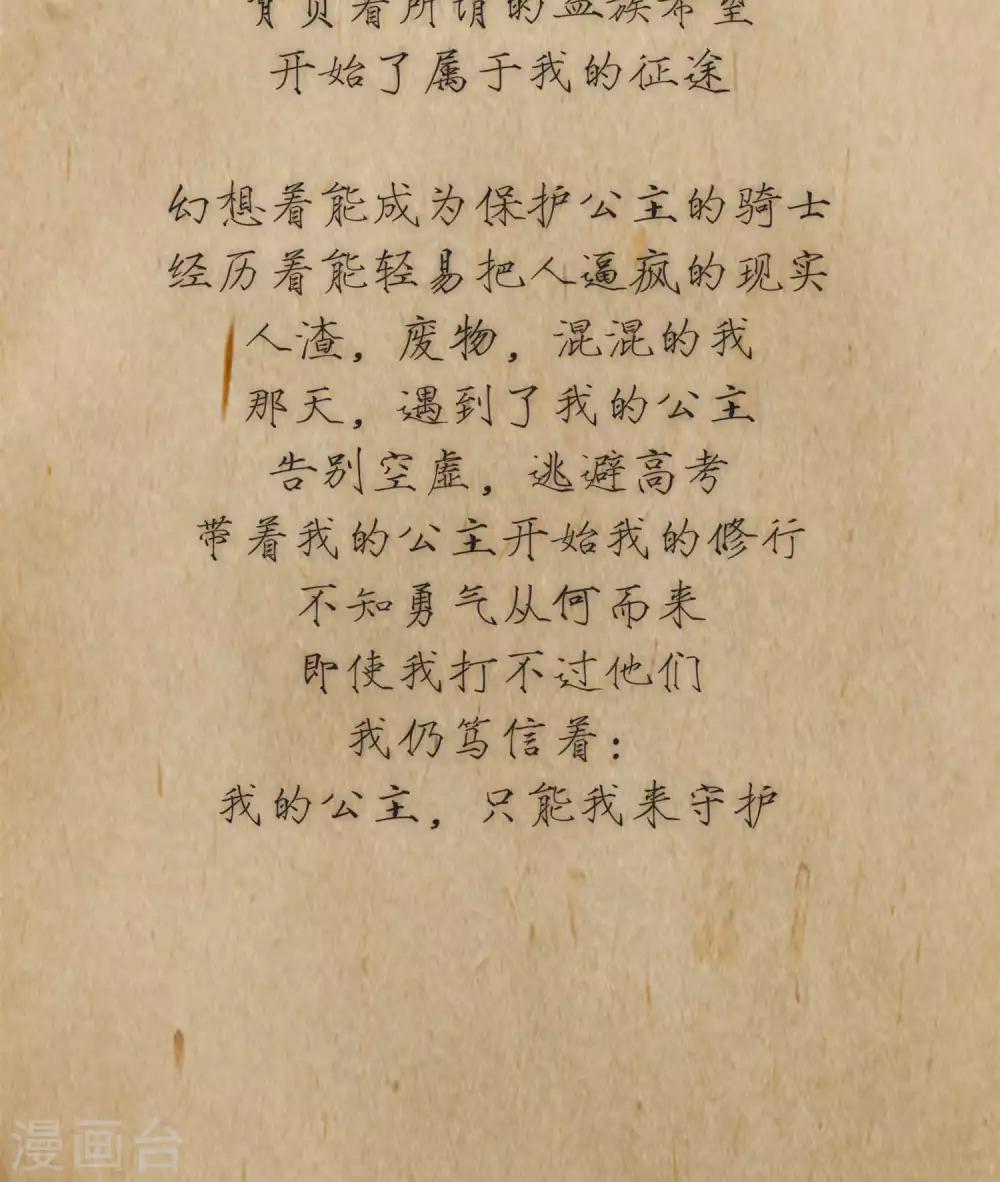 背负着所谓的血族希望
开始了属于我的征途
幻想着能成为保护公主的骑士
经历着能轻易把人逼疯的现实
人渣，废物，混混的我
那天，遇到了我的公主
告别空虚，逃避高考
带着我的公主开始我的修行
不知勇气从何而来
即使我打不过他们
我仍笃信着：
我的公主，只能我来守护
漫画台